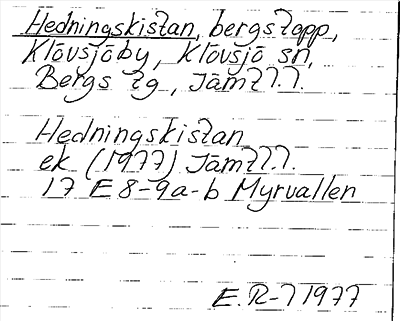 Hedningskistan, bergstopp,
Klövsjöby, Klövsjö sn,
Bergs tg, Jämtl.
Hedningskistan
ek (1977) Jämtl.
17 E 8-9a-b Myrvallen
E. R-l 1977